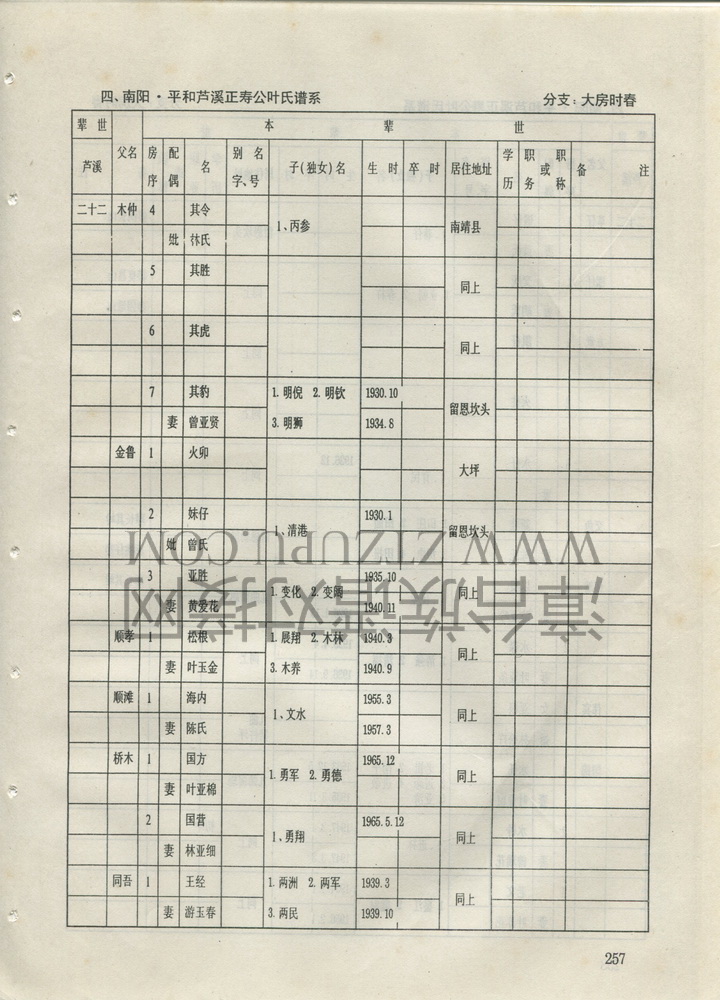 四、南阳·平和芦溪正寿公叶氏谱系 分支：大房时春
辈世 本 辈 世
芦溪 父名 房序 配偶 名 别名字、号 子(独女)名 生时 卒时 居住地址 学历 职务或职称 备注
二十二 木仲 4 其令 1、丙参 南靖县
妣 林氏
5 其胜 同上
6 其虎 同上
7 其豹 1.明倪 2.明钦 1930.10 留恩坎头
妻 曾亚贤 3.明狮 1934.8
金鲁 1 火卯 大坪
2 妹仔 1、清港 1930.1 留恩坎头
妣 曾氏
3 亚胜 1.变化 2.变阔 1935.10 同上
妻 黄爱花 1940.11
顺孝 1 松根 1.展翔 2.木林 1940.3 同上
妻 叶玉金 3.木养 1940.9
顺滩 1 海内 1、文水 1955.3 同上
妻 陈氏 1957.3
桥木 1 国方 1.勇军 2.勇德 1965.12 同上
妻 叶亚棉
2 国营 1、勇翔 1965.5.12 同上
妻 林亚细
同吾 1 王经 1.两洲 2.两军 1939.3 同上
妻 游玉春 3.两民 1939.10
257
WWW.ZTZUPU.COM
漳台族谱对接网